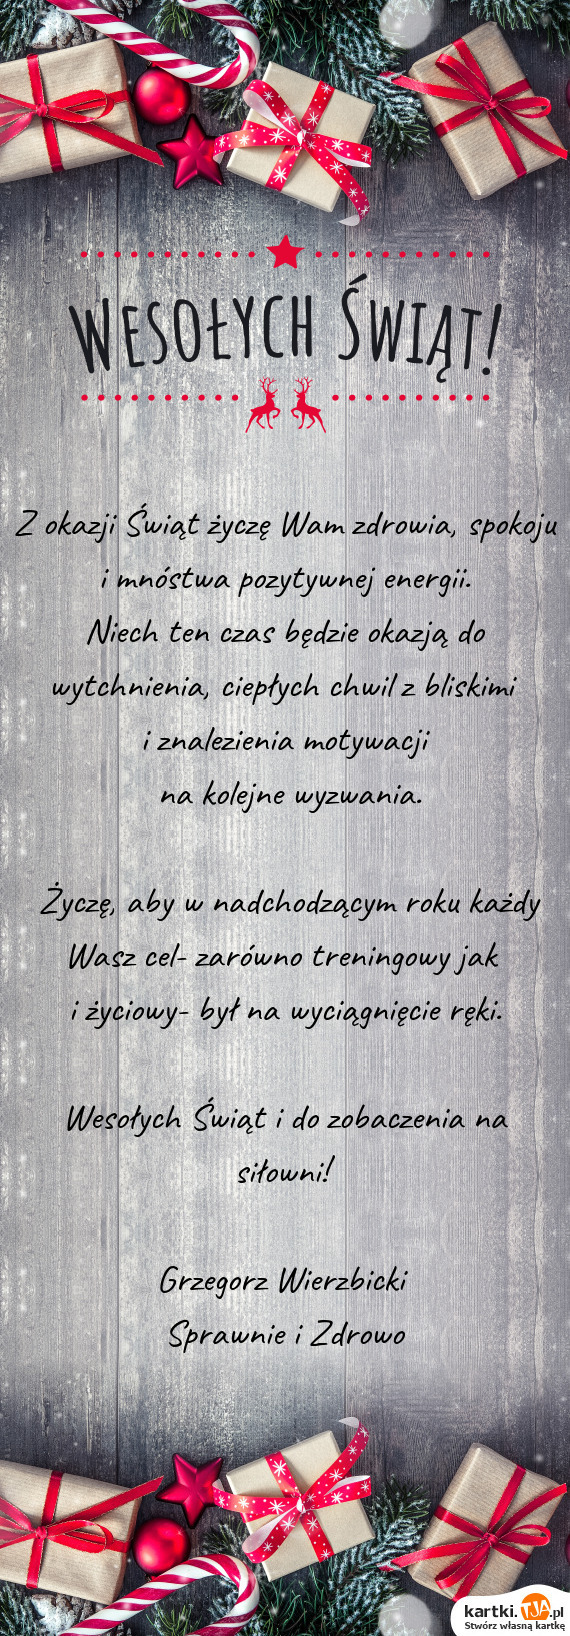 Wesołych Świąt!
Z okazji Świąt życzę Wam zdrowia, spokoju
i mnóstwa pozytywnej energii.
Niech ten czas będzie okazją do
wytchnienia, ciepłych chwil z bliskimi
i znalezienia motywacji
na kolejne wyzwania.
Życzę, aby w nadchodzącym roku każdy
Wasz cel- zarówno treningowy jak
i życiowy- był na wyciągnięcie ręki.
Wesołych Świąt i do zobaczenia na
siłowni!
Grzegorz Wierzbicki
Sprawnie i Zdrowo
kartki.TJA.pl
Stwórz własną kartkę